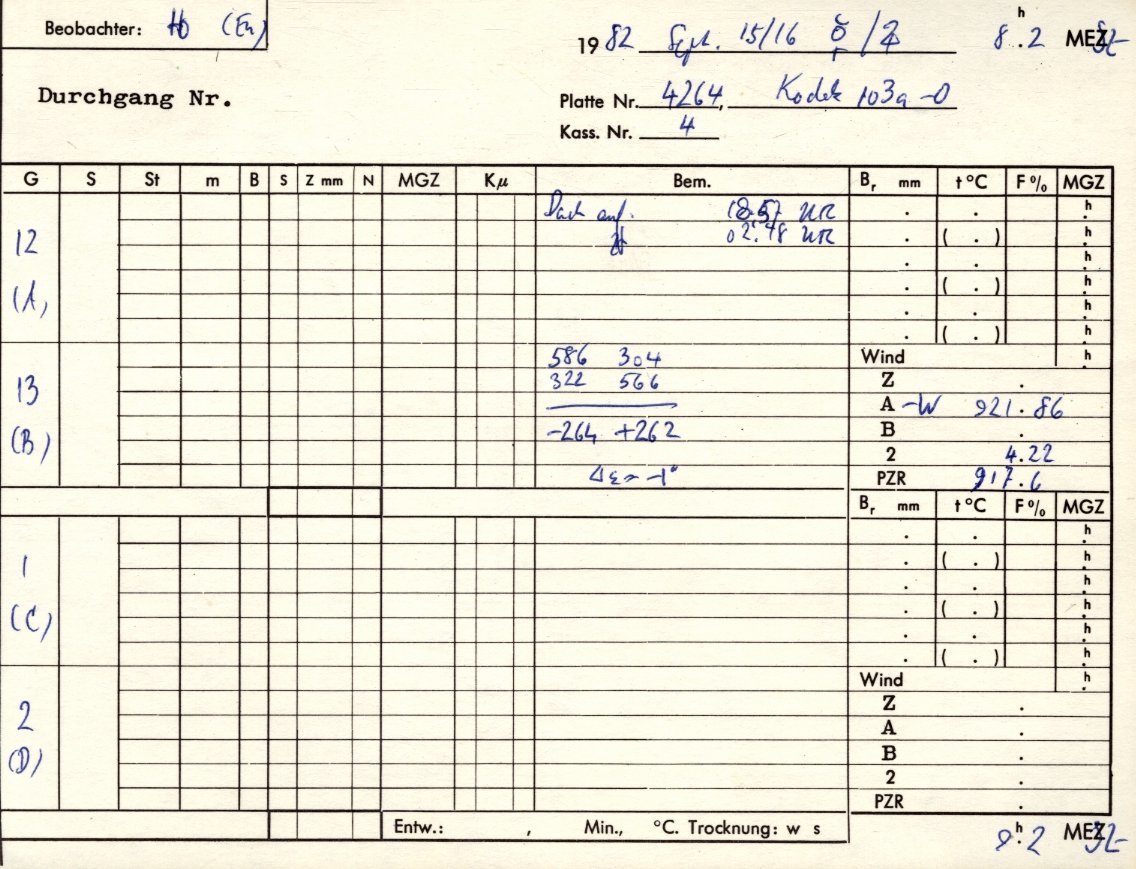 Beobachter: Ho (En)
1982 Sept. 15/16 8h.2 MEZ
Durchgang Nr.
Platte Nr. 4264, Kodak 103a-O
Kass. Nr. 4
G S St m B S Z mm N MGZ Kμ Bem. Br mm t °C F % MGZ
Dach auf. UR . . h
12 02.48 UR . ( . ) h
. . h
(A) . ( . ) h
. . h
. ( . ) h
586 304 Wind h
13 322 566 Z .
A -W 921.86
(B) -264 +262 B .
2 4.22
Δε = -1° PZR 917.6
Br mm t °C F % MGZ
. . h
1 . ( . ) h
. . h
(C) . ( . ) h
. . h
. ( . ) h
Wind h
2 Z .
A .
(D) B .
2 .
PZR .
Entw.: , Min., °C. Trocknung: w s
8h.2 MEZ